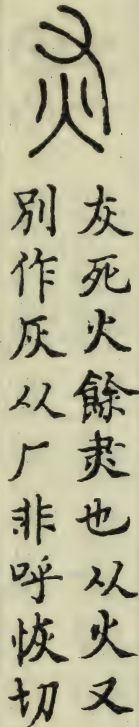 灰
灰死火餘㶳也从火又
別作灰从厂非呼恢切